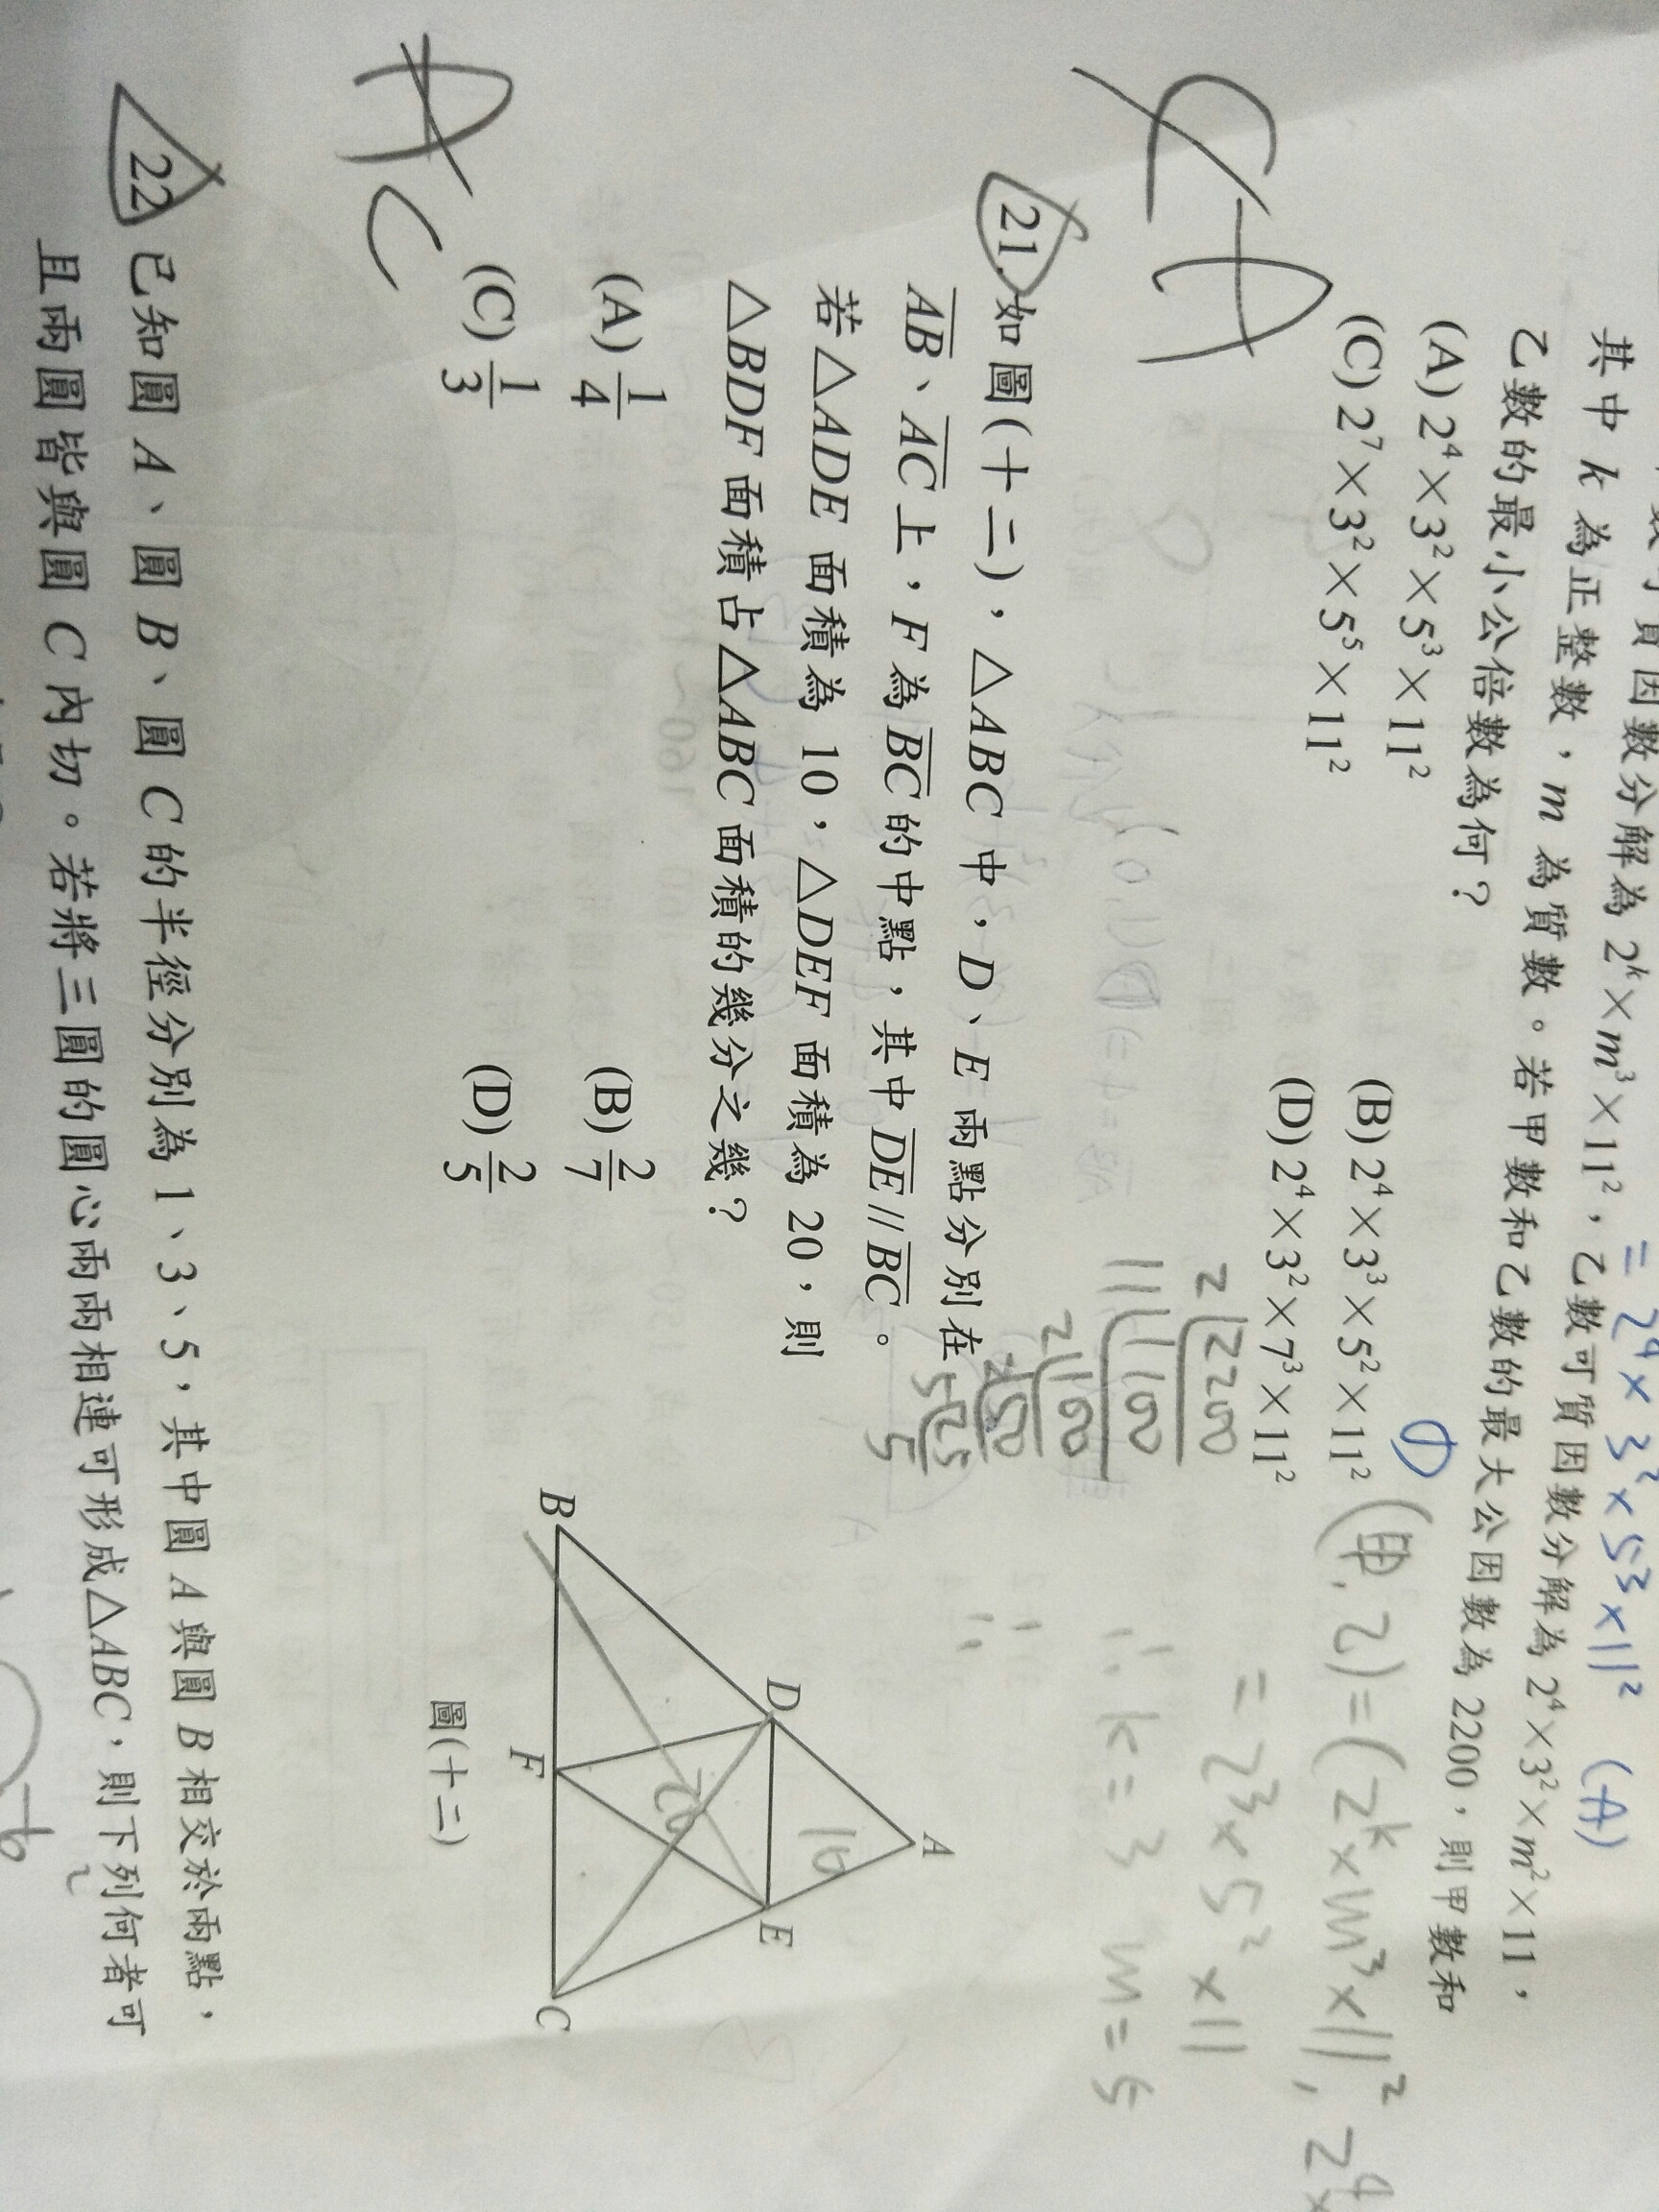 數可質因數分解為 2ᵏ×m³×11²，乙數可質因數分解為 2⁴×3²×m²×11，
= 2⁴×3²×5³×11² (A)
其中 k 為正整數，m 為質數。若甲數和乙數的最大公因數為 2200，則甲數和
乙數的最小公倍數為何？
(A) 2⁴×3²×5³×11²
(B) 2⁴×3³×5²×11²
(C) 2⁷×3²×5⁵×11²
(D) 2⁴×3²×7³×11²
(甲,乙)=(2ᵏ×m³×11², 2⁴×
= 2³×5²×11
∴k=3 m=5
A
2 2200
11 1100
2 100
2 50
5 25
5
21. 如圖(十二)，△ABC 中，D、E 兩點分別在
AB、AC 上，F 為 BC 的中點，其中 DE // BC。
若△ADE 面積為 10，△DEF 面積為 20，則
△BDF 面積占△ABC 面積的幾分之幾？
(A) 1/4
(B) 2/7
(C) 1/3
(D) 2/5
A
C
A
10
D
E
20
B
F
C
圖(十二)
22 已知圓 A、圓 B、圓 C 的半徑分別為 1、3、5，其中圓 A 與圓 B 相交於兩點，
且兩圓皆與圓 C 內切。若將三圓的圓心兩兩相連可形成△ABC，則下列何者可